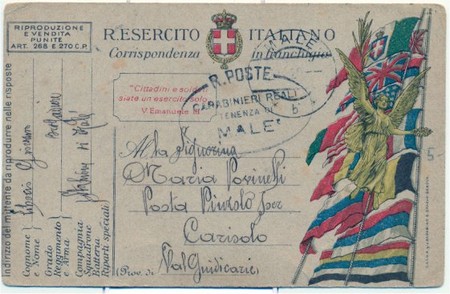 RIPRODUZIONE
E VENDITA
PUNITE
ART. 268 E 270 C.P.
R. ESERCITO ITALIANO
Corrispondenza in franchigia
"Cittadini e soldati
siate un esercito solo"
V. Emanuele III
R. POSTE
CARABINIERI REALI
TENENZA
MALE'
Alla Signorina
Maria Povinelli
Posta Pinzolo per
Carisolo
(Prov. di Val Giudicarie
Indirizzo del mittente da riprodurre nelle risposte
Cognome
e Nome
Grado
Reggimento
e Arma
Compagnia
Squadrone
Batteria
Riparti speciali
di Malé
5-